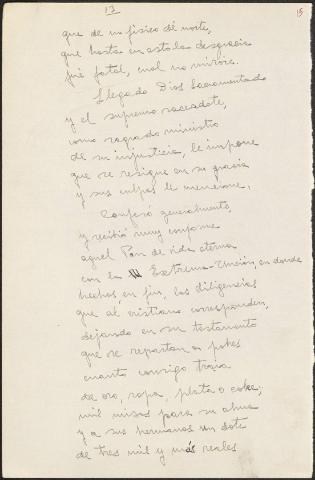 17
15
que de un fisico dé norte,
que hasta en esto la desgracia
fué fatal, cual no mirois.
Llegado Dios Sacramentado
y el supremo sacerdote,
como sagrado ministro
de su injusticia, le impone
que se resigne en su gracia
y sus culpas le mencione,
Confesó generalmente,
y recibió muy conforme
aquel Pan de vida eterna
con la Extrema-Unción, en donde
hechas, en fin, las diligencias
que al cristiano corresponden,
dejando en su testamento
que se repartan a pobres
cuanto consigo traia
de oro, ropa, plata o cobre;
mil misas para su alma
y a sus hermanos un dote
de tres mil y más reales